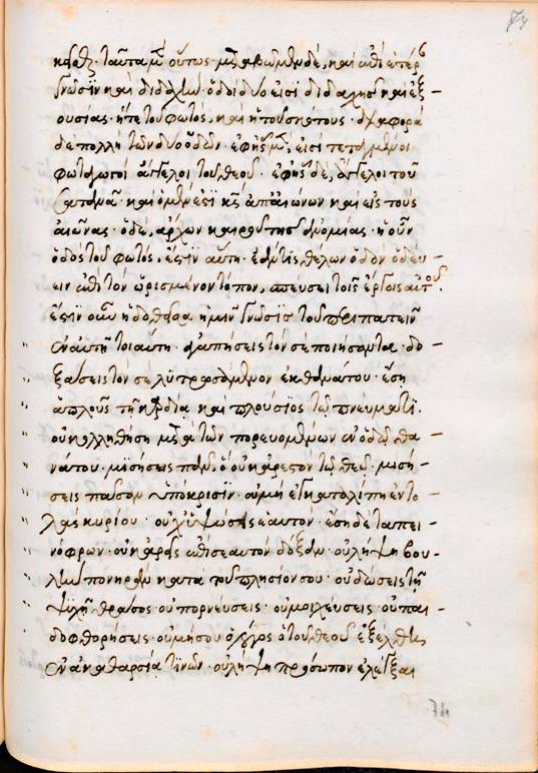 ταῦτα μὲν οὕτως· μεταβῶμεν δὲ, καὶ ἐπὶ ἑτέρ
γνῶσϊν καὶ διδαχὴν· ὁδοὶ δύο εἰσὶ διδαχῆς καὶ ἐξ–
ουσίας· ἥτε τοῦ φωτὸς, καὶ ἡ τοῦ σκότους· διαφορὰ
δὲ πολλὴ τῶν δύο ὁδῶν· ἐφ' ἧς μὲν, εἰσὶ τεταγμένοι
φωταγωγοὶ ἄγγελοι τοῦ θεοῦ· ἐφ' ἧς δὲ, ἄγγελοι τοῦ
σατανᾶ· καὶ ὁ μὲν ἐστὶ κς ἀπ' αἰώνων καὶ εἰς τοὺς
αἰῶνας· ὁ δὲ, ἄρχων καιροῦ τῆς ἀνομίας· ἡ οὖν
ὁδὸς τοῦ φωτὸς, ἐστὶν αὕτη· ἐάν τις θέλων ὁδὸν ὁδεύ–
ειν ἐπὶ τὸν ὡρισμένον τόπον, σπεύσει τοῖς ἔργοις αὐτοῦ.
ἔστιν οὖν ἡ δοθεῖσα ἡμῖν γνῶσις τοῦ περιπατεῖν
ἐν αὐτῇ τοιαύτη· ἀγαπήσεις τόν σε ποιήσαντα· δο–
ξάσεις τόν σε λυτρωσάμενον ἐκ θανάτου· ἔσῃ
ἁπλοῦς τῇ καρδίᾳ καὶ πλούσιος τῷ πνεύματι.
οὐ κολληθήσῃ μετὰ τῶν πορευομένων ἐν ὁδῷ θα–
νάτου· μισήσεις πᾶν, ὃ οὐκ ἀρεστὸν τῷ θεῷ· μισή–
σεις πᾶσαν ὑπόκρισιν· οὐ μὴ ἐγκαταλίπῃ ἐντο–
λὰς κυρίου· οὐχ ὑψώσεις ἑαυτὸν· ἔσῃ δὲ ταπει–
νόφρων· οὐκ ἀρεῖς ἐπὶ σεαυτὸν δόξαν· οὐ λήψῃ βου–
λὴν πονηρὰν κατὰ τοῦ πλησίον σου· οὐ δώσεις τῇ
ψυχῇ θράσος· οὐ πορνεύσεις· οὐ μοιχεύσεις· οὐ παι–
δοφθορήσεις· οὐ μή σου ὁ λόγος ὁ τοῦ θεοῦ ἐξέλθῃ
ἐν ἀκαθαρσίᾳ τινῶν· οὐ λήψῃ πρόσωπον ἐλέγξαι
74